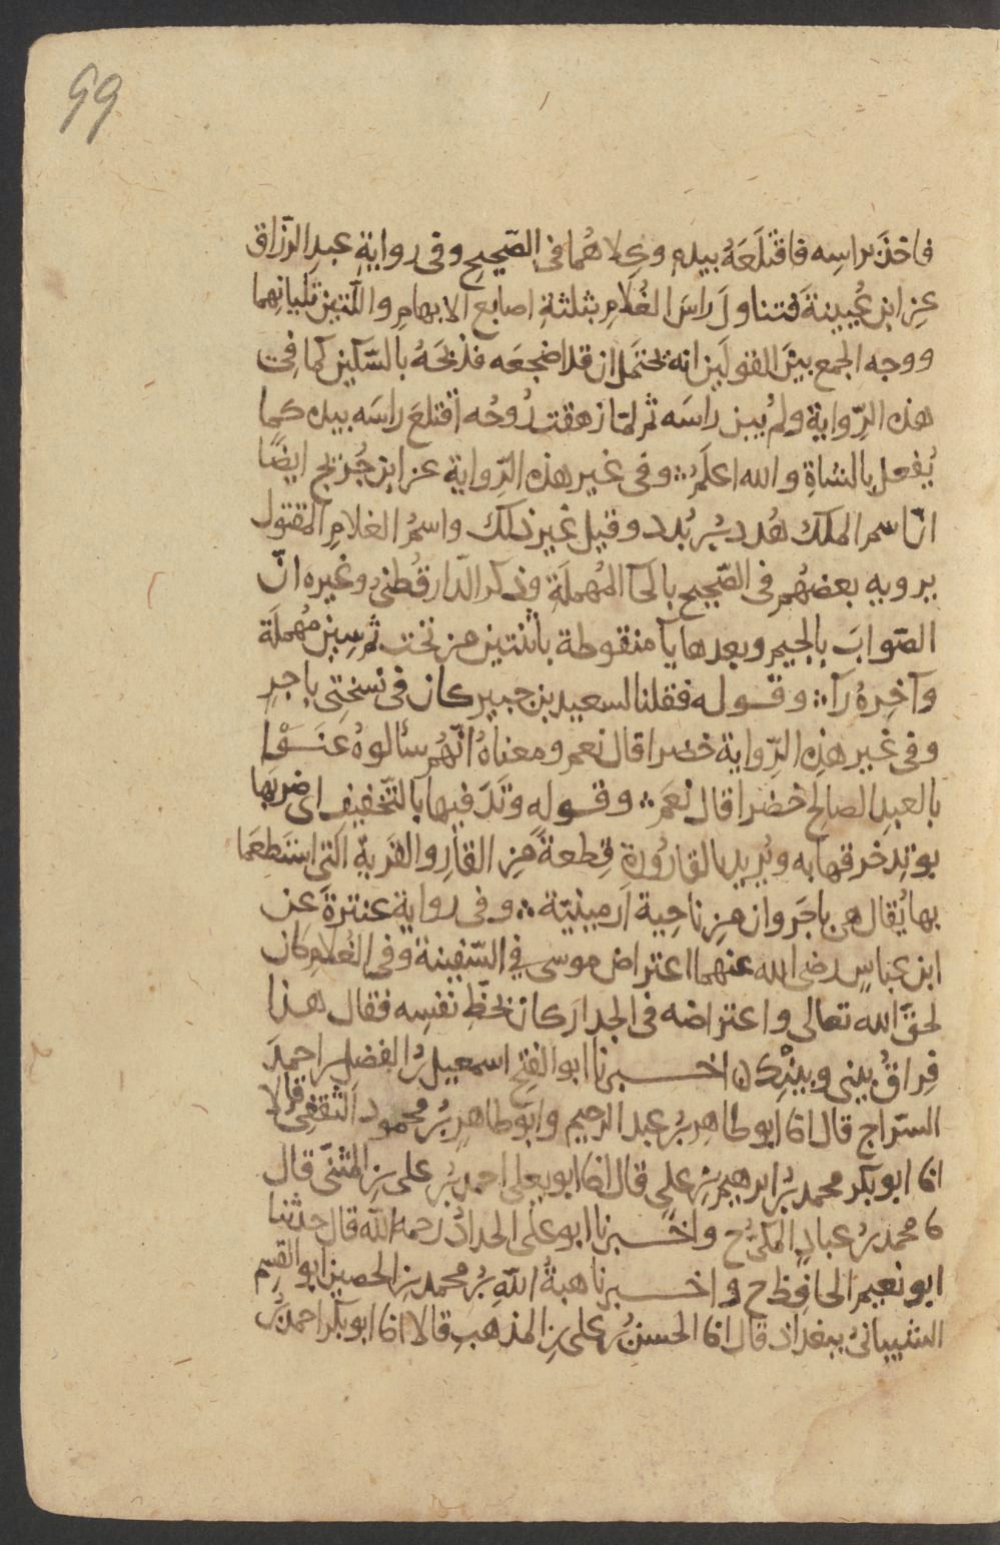 99
فاخذ براسِه فاقتلَعَهُ بيده وكلاهُما فى الصّحيح وفى روايةِ عبدِ الرّزاق
عن ابن عُيينةَ فتناول راسَ الغُلامِ بثلثةِ اصابع الابهامِ واللّتين تليانِهما
ووجه الجمع بينَ القولَين انه يحتمل ان قد اضجعَه فذبحَهُ بالسّكين كما فى
هذه الرّواية ولم يبن راسَه ثم لمّا زهقت رُوحُه اقتلعَ راسَه بيده كما
يُفعل بالشاةِ والله اعلَمُ ∴ وفى غير هذه الرّواية عن ابن جُريج ايضًا
انّ اسم الملك هُدد بُن بُدد وقيل غير ذلك واسمُ الغلامِ المقتول
يرويه بعضهُم فى الصّحيح بالحآ المُهملَةِ وذكر الدّارقُطنىُ وغيره انّ
الصّوابَ بالجيم وبعدها يآ منقوطة باثنتين من تحت ثم سين مُهملَة
وآخِرهُ رآ ∴ وقوله فقلنا لسعيد بن جبير كان فى نسختِى باجرِ
وفى غير هذِه الرّواية خضرا قال نعم ومعناهُ انّهُم سألوهُ عَنَوْا
بالعبدِ الصالحِ خضرا قال نعَمَ ∴ وقوله وتَدَ فيها بالتّخفيف اى ضربَها
بوتِد خرقها به ويُريد بالقارُورةِ قِطعةً مِن القارِ والقَرية الّتى استطعَما
بها يُقال هى باجَروان مِن ناحِية ارمينيّة ∴ وفى رواية عنترةَ عن
ابن عباسٍ رضى الله عنهما اعتراض موسى فى السّفينة وفى الغُلامِ كان
لحقّ الله تعالى واعتراضه فى الجدار كان لحظِّ نفسِه فقال هذا
فِراقُ بينى وبينِك ن اخبرنا ابو الفتح اسمعيل بن الفضل بن احمدَ
السّراج قال انا ابو طاهِر بُن عبد الرحيم وابو طاهِرٍ بُن محمود الثقفِى قالا
انا ابو بكر محمد بُن ابرهيم بن علىٍ قال انا ابو يعلى احمد بُن على بنِ المثنّى قال
نا محمد بُن عبادٍ المكىُ ح واخبرنا ابو علىٍ الحدادُ رحمه اللّه قال حدثنا
ابو نعيم الحافِظ ح واخبرنا هبةُ اللّهِ بُن محمد بن الحصين ابو القسِم
الشيبانىُ ببغداذ قال انا الحسنُ بُن على بنِ المذهبِ قالا انا ابو بكر احمد بُن